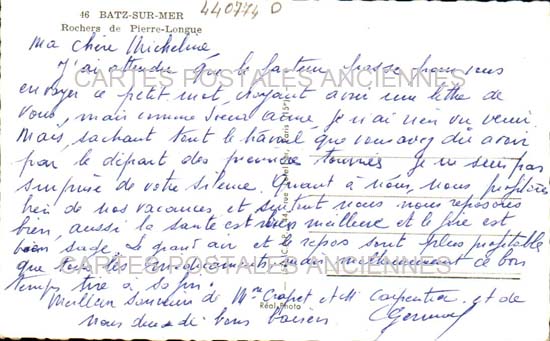 46 BATZ-SUR-MER
Rochers de Pierre-Longue
440774 D
Ma chère Micheline,
J'ai attendu que le facteur passe pour vous
envoyer ce petit mot, croyant avoir une lettre de
vous, mais comme Sœur Anne, je n'ai rien vu venir
Mais, sachant tout le travail que vous avez dû avoir
par le départ des je ne suis pas
surprise de votre silence. Quant à nous, nous profitons
bien de nos vacances et surtout nous nous reposons
bien, aussi la santé est meilleure et le foie est
bien Le grand air et le repos sont plus profitables
que tous les médicaments mais malheureusement ce bon
temps tire à sa fin.
Meilleur souvenir de Mme et M Carpentier et de
nous deux de bons baisers.
CARTES POSTALES ANCIENNES
CARTES POSTALES ANCIENNES
Réal-Photo